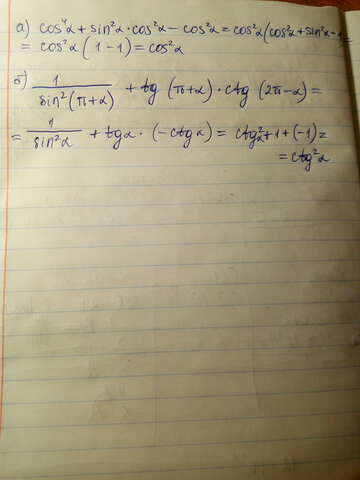 а) cos⁴α + sin²α · cos²α − cos²α = cos²α (cos²α + sin²α − 1) =
= cos²α (1 − 1) = cos²α
б) 1/sin²(π+α) + tg (π+α) · ctg (2π−α) =
= 1/sin²α + tgα · (−ctgα) = ctg²α + 1 + (−1) =
= ctg²α